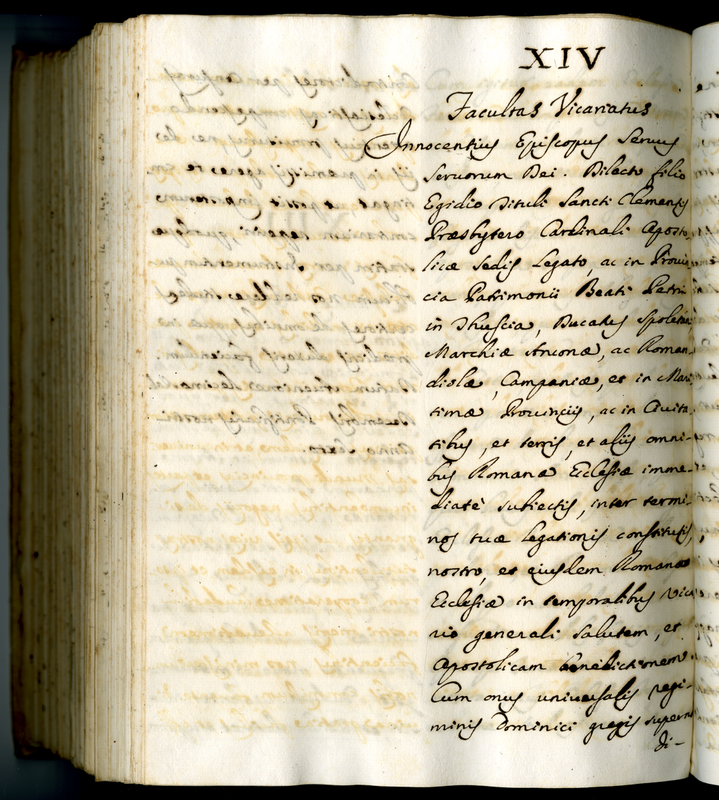 XIV
Facultas Vicariatus
Innocentius Episcopus Servus
Servorum Dei. Dilecto filio
Egidio Tituli Sancti Clementis
Præsbytero Cardinali Aposto-
licæ Sedis Legato, ac in Provin
cia Patrimonii Beati Petri
in Thuscia, Ducatus Spoletani
Marchiæ Anconæ, ac Roman-
diolæ, Campaniæ, et in Mari
timæ Provinciis, ac in Civita
tibus, et terris, et aliis omni-
bus Romanæ Ecclesiæ imme-
diatè subiectis, inter termi-
nos tuæ legationis constitutis,
nostro, et eiusdem Romanæ
Ecclesiæ in temporalibus Vica
rio generali salutem, et
Apostolicam benedictionem
Cum onus universalis regi-
minis Dominici gregis superna
di-